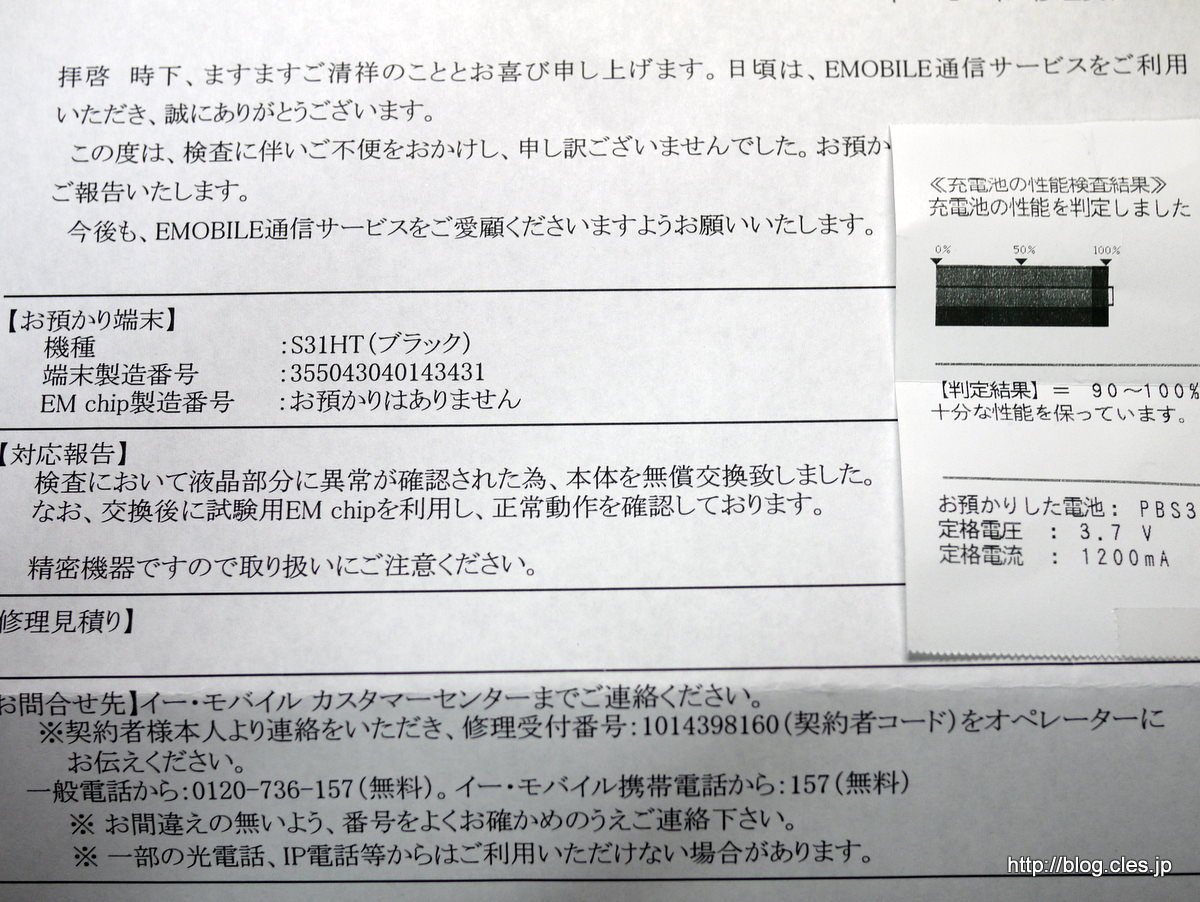 拝啓　時下、ますますご清祥のこととお喜び申し上げます。日頃は、EMOBILE通信サービスをご利用
いただき、誠にありがとうございます。
この度は、検査に伴いご不便をおかけし、申し訳ございませんでした。お預か
ご報告いたします。
今後も、EMOBILE通信サービスをご愛顧くださいますようお願いいたします。
【お預かり端末】
機種　：S31HT（ブラック）
端末製造番号　：355043040143431
EM chip製造番号　：お預かりはありません
【対応報告】
検査において液晶部分に異常が確認された為、本体を無償交換致しました。
なお、交換後に試験用EM chipを利用し、正常動作を確認しております。
精密機器ですので取り扱いにご注意ください。
修理見積り】
お問合せ先】イー・モバイル カスタマーセンターまでご連絡ください。
※契約者様本人より連絡をいただき、修理受付番号：1014398160（契約者コード）をオペレーターに
お伝えください。
一般電話から：0120-736-157（無料）。イー・モバイル携帯電話から：157（無料）
※ お間違えの無いよう、番号をよくお確かめのうえご連絡下さい。
※ 一部の光電話、IP電話等からはご利用いただけない場合があります。
≪充電池の性能検査結果≫
充電池の性能を判定しました
0% 50% 100%
【判定結果】＝ 90～100%
十分な性能を保っています。
お預かりした電池： PBS3
定格電圧　： 3.7 V
定格電流　： 1200mA
http://blog.cles.jp